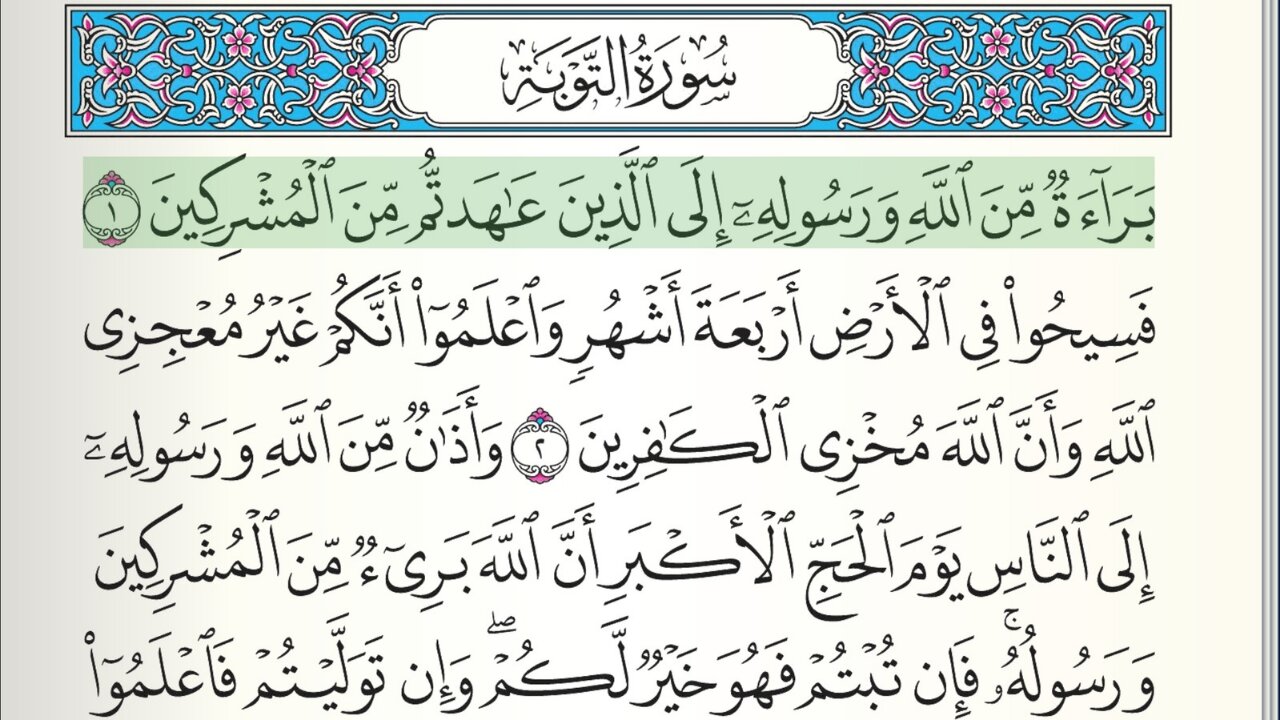 سُورَةُ التَّوۡبَةِ
بَرَآءَةٞ مِّنَ ٱللَّهِ وَرَسُولِهِۦٓ إِلَى ٱلَّذِينَ عَٰهَدتُّم مِّنَ ٱلۡمُشۡرِكِينَ ١
فَسِيحُواْ فِي ٱلۡأَرۡضِ أَرۡبَعَةَ أَشۡهُرٖ وَٱعۡلَمُوٓاْ أَنَّكُمۡ غَيۡرُ مُعۡجِزِي
ٱللَّهِ وَأَنَّ ٱللَّهَ مُخۡزِي ٱلۡكَٰفِرِينَ ٢ وَأَذَٰنٞ مِّنَ ٱللَّهِ وَرَسُولِهِۦٓ
إِلَى ٱلنَّاسِ يَوۡمَ ٱلۡحَجِّ ٱلۡأَكۡبَرِ أَنَّ ٱللَّهَ بَرِيٓءٞ مِّنَ ٱلۡمُشۡرِكِينَ
وَرَسُولُهُۥۚ فَإِن تُبۡتُمۡ فَهُوَ خَيۡرٞ لَّكُمۡۖ وَإِن تَوَلَّيۡتُمۡ فَٱعۡلَمُوٓاْ